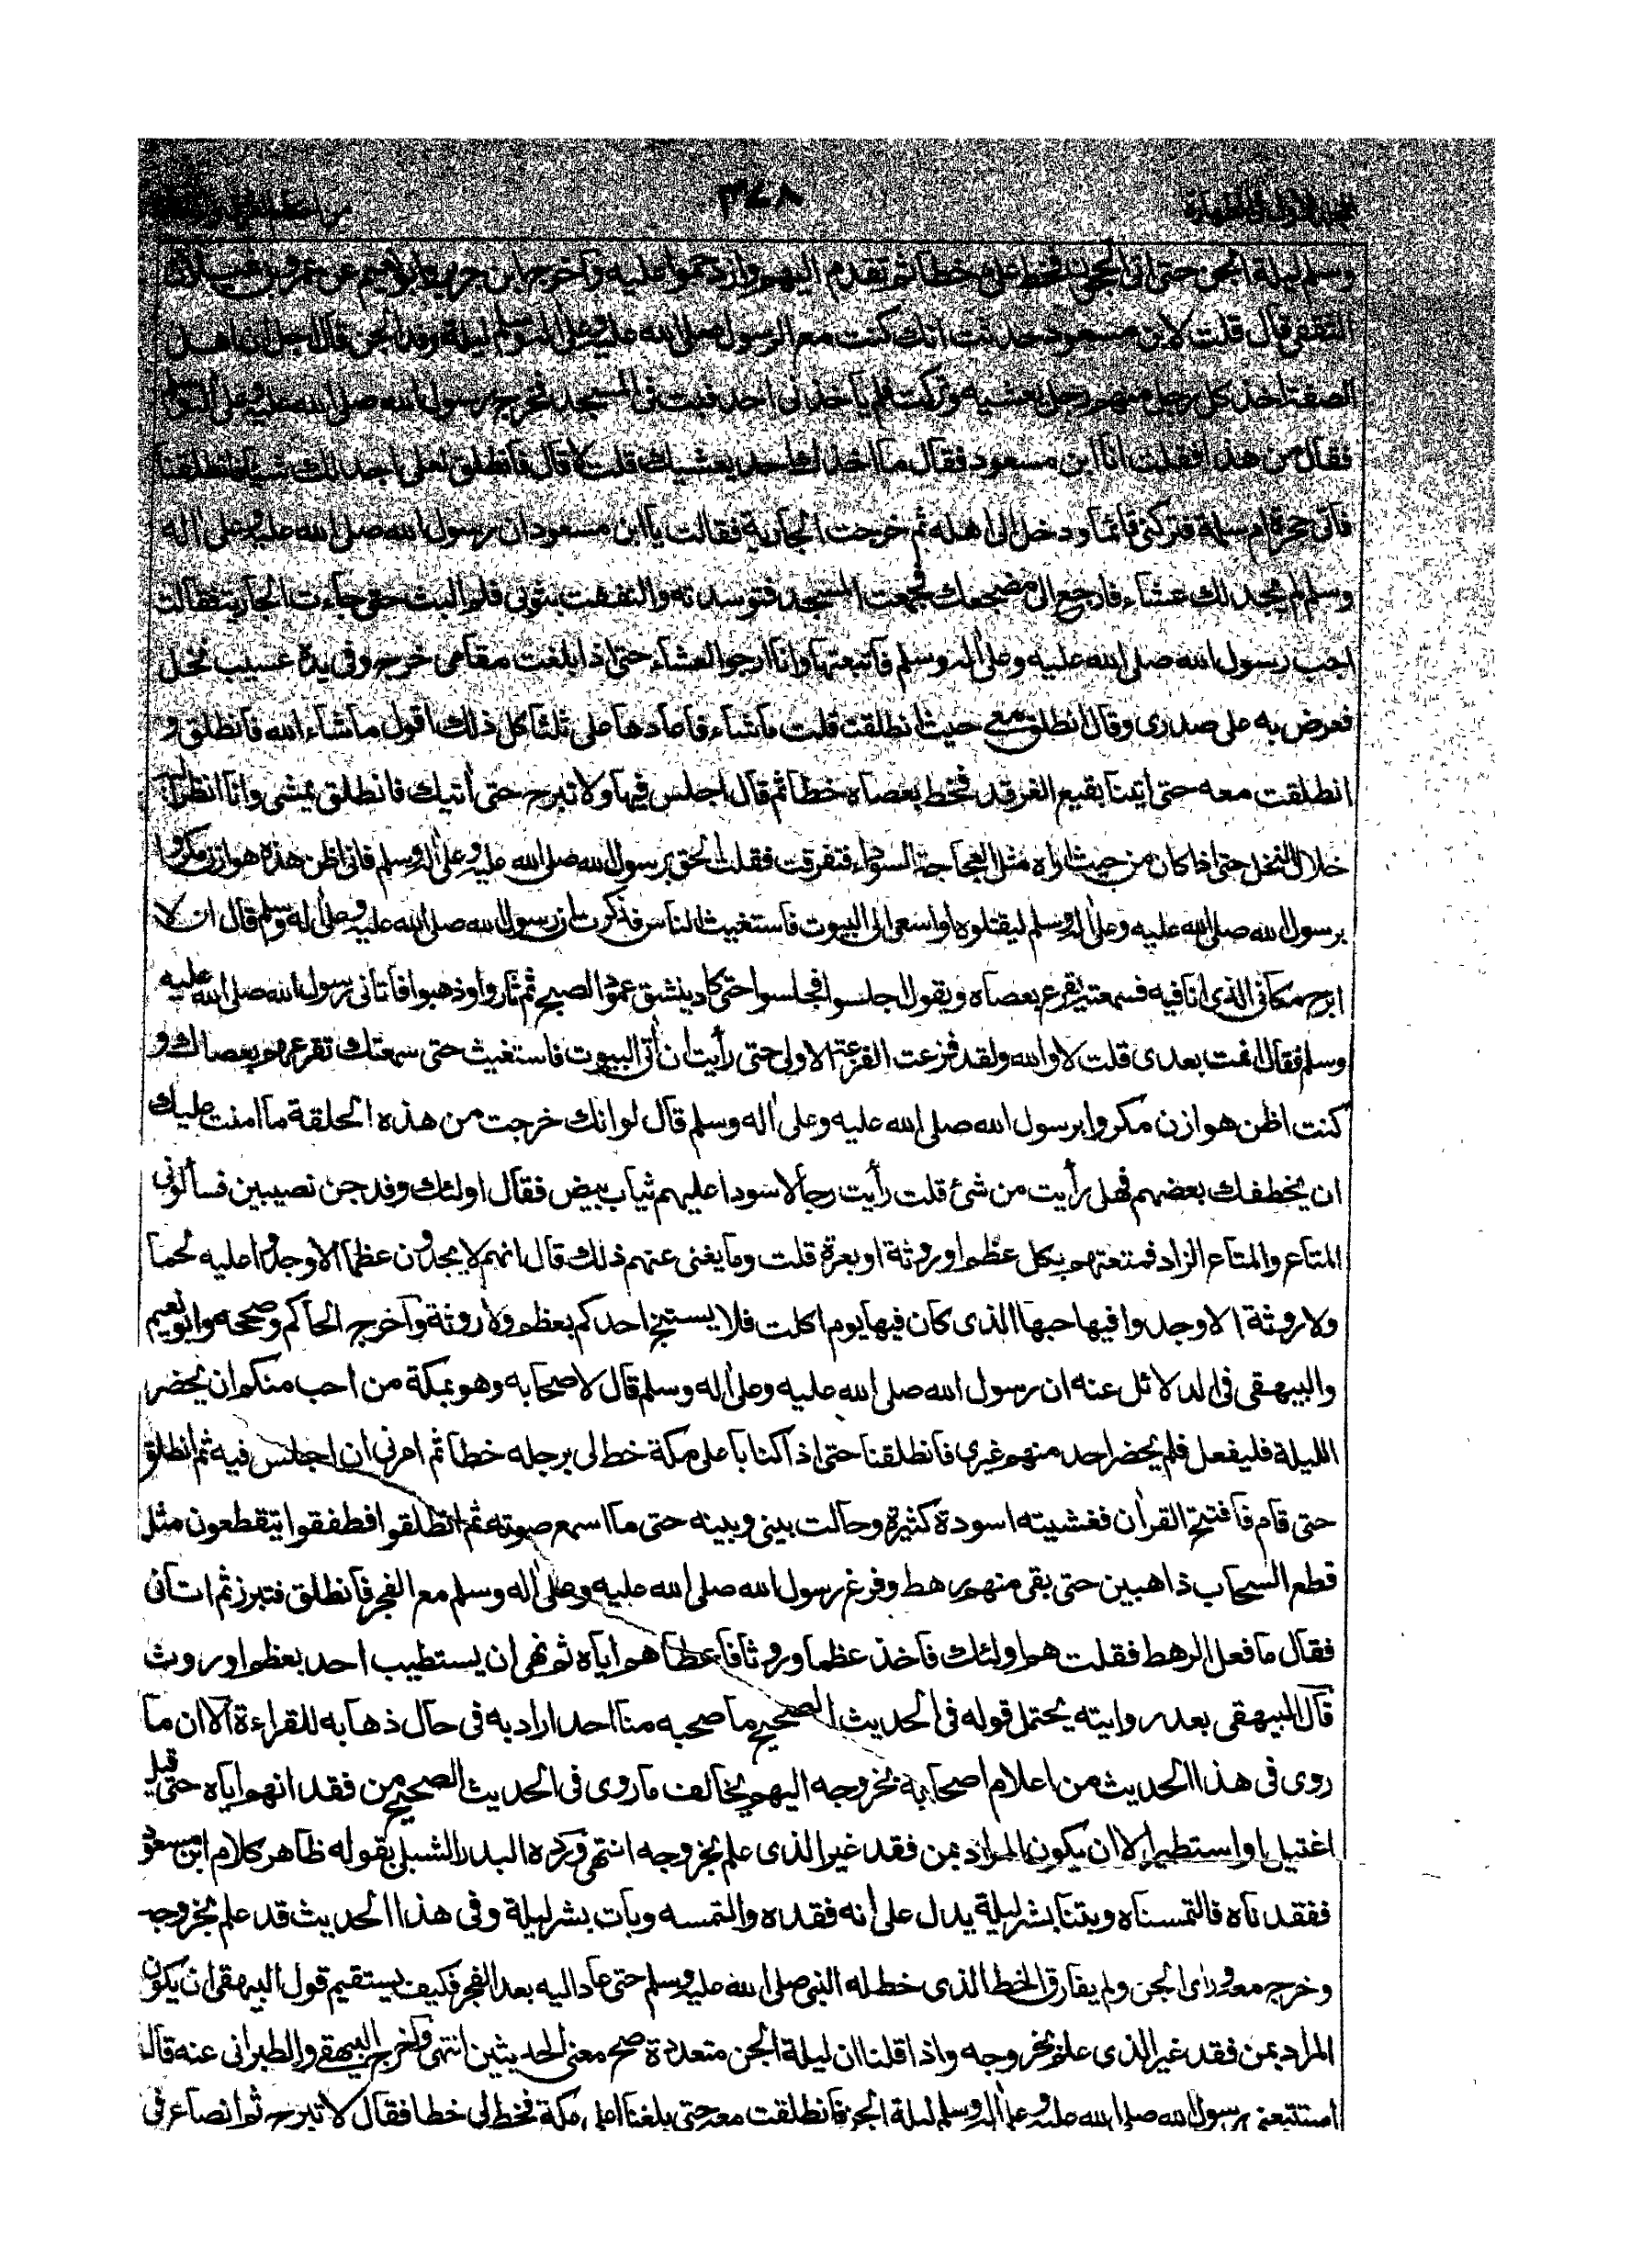 ٣٤٨
وسلم ليلة الجن حتى اتى الحجون فخط على خطا ثم تقدم اليهم وازدحموا عليه وآخرج ابن جرير وابو نعيم عن عمرو بن غيلان
الثقفى قال قلت لابن مسعود حدثت انك كنت مع الرسول صلى الله عليه وعلى اله وسلم ليلة وفد الجن قال اجل ان اهل
الصفة اخذ كل رجل منهم رجل يعشيه وتركت فلم ياخذنى احد فبت فى المسجد فخرج رسول الله صلى الله عليه وعلى اله وسلم
فقال من هذا فقلت انا ابن مسعود فقال ما اخذك احد يعشيك قلت لا قال فانطلق لعلى اجد لك شيئا فانطلقنا
فاتى حجرة ام سلمة فتركنى قائما ودخل الى اهله ثم خرجت الجارية فقالت يا ابن مسعود ان رسول الله صلى الله عليه وعلى اله
وسلم لم يجد لك عشاء فارجع الى مضجعك فجمعت المسجد فتوسدته والتففت بثوبى فلم البث حتى جاءت الجارية فقالت
اجب رسول الله صلى الله عليه وعلى اله وسلم فاتبعتها وانا ارجو العشاء حتى اذا بلغت مقامى خرج وفى يده عسيب نخل
فعرض به على صدرى وقال انطلق معى حيث انطلقت قلت ماشاء فاعادها على ثلثا كل ذلك اقول ماشاء الله فانطلق و
انطلقت معه حتى أتينا بقيع الغرقد فخط بعصاه خطا ثم قال اجلس فيها ولا تبرح حتى أتيك فانطلق يمشى وانا انظر اليه
خلال النخل حتى اذا كان من حيث اراه مثل العجاجة السوداء فتفرقت فقلت الحق برسول الله صلى الله عليه وعلى اله وسلم فانى اظن هذه هوازن مكروا
برسول الله صلى الله عليه وعلى اله وسلم ليقتلوه او اسعى الى البيوت فاستغيث الناس فذكرت ان رسول الله صلى الله عليه وعلى اله وسلم قال ان لا
ابرح مكانى الذى انا فيه فسمعته يقرع بعصاه ويقول اجلسوا فجلسوا حتى كاد ينشق عمود الصبح ثم ثاروا وذهبوا فاتانى رسول الله صلى الله عليه
وسلم فقال انمت بعدى قلت لا والله ولقد فزعت الفزعة الاولى حتى رأيت ان أتى البيوت فاستغيث حتى سمعتك تقرعهم بعصاك و
كنت اظن هوازن مكروا برسول الله صلى الله عليه وعلى اله وسلم قال لو انك خرجت من هذه الحلقة ما امنت عليك
ان يخطفك بعضهم فهل رأيت من شئ قلت رأيت رجالا سودا عليهم ثياب بيض فقال اولئك وفد جن نصيبين فسألونى
المتاع والمتاع الزاد فمتعتهم بكل عظم او روثة او بعرة قلت وما يغنى عنهم ذلك قال انهم لا يجدون عظما الا وجدوا عليه لحما
ولا روثة الا وجدوا فيها حبها الذى كان فيها يوم اكلت فلا يستنج احدكم بعظم ولا روثة وآخرج الحاكم وصححه وابو نعيم
والبيهقى فى الدلائل عنه ان رسول الله صلى الله عليه وعلى اله وسلم قال لاصحابه وهو بمكة من احب منكم ان يحضر
الليلة فليفعل فلم يحضر احد منهم غيرى فانطلقنا حتى اذا كنا باعلى مكة خط لى برجله خطا ثم امرنى ان اجلس فيه ثم انطلق
حتى قام فافتتح القرأن فغشيته اسودة كثيرة وحالت بينى وبينه حتى ما اسمع صوته ثم انطلقوا فطفقوا يتقطعون مثل
قطع السحاب ذاهبين حتى بقى منهم رهط وفرغ رسول الله صلى الله عليه وعلى اله وسلم مع الفجر فانطلق فتبرز ثم اتانى
فقال ما فعل الرهط فقلت هم اولئك فاخذ عظما وروثا فاعطاهم اياه ثم نهى ان يستطيب احد بعظم او روث
قال البيهقى بعد روايته يحتمل قوله فى الحديث الصحيح ما صحبه منا احد اراد به فى حال ذهابه للقراءة الا ان ما
روى فى هذا الحديث من اعلام اصحابه بخروجه اليهم يخالف ما روى فى الحديث الصحيح من فقدانهم اياه حتى قيل
اغتيل او استطير الا ان يكون المراد بمن فقد غير الذى علم بخروجه انتهى ورده البدر الشبلى بقوله ظاهر كلام ابن مسعود
ففقدناه فالتمسناه وبتنا بشر ليلة يدل على انه فقده والتمسه وبات بشر ليلة وفى هذا الحديث قد علم بخروجه
وخرج معه ورأى الجن ولم يفارق الخط الذى خط له النبى صلى الله عليه وسلم حتى عاد اليه بعد الفجر فكيف يستقيم قول البيهقى ان يكون
المراد بمن فقد غير الذى علم بخروجه واذا قلنا ان ليلة الجن متعددة صح معنى الحديثين انتهى وآخرج البيهقى والطبرانى عنه قال
استتبعنى رسول الله صلى الله عليه وعلى اله وسلم ليلة الجن فانطلقت معه حتى بلغنا اعلى مكة فخط لى خطا فقال لا تبرح ثم انصاع فى